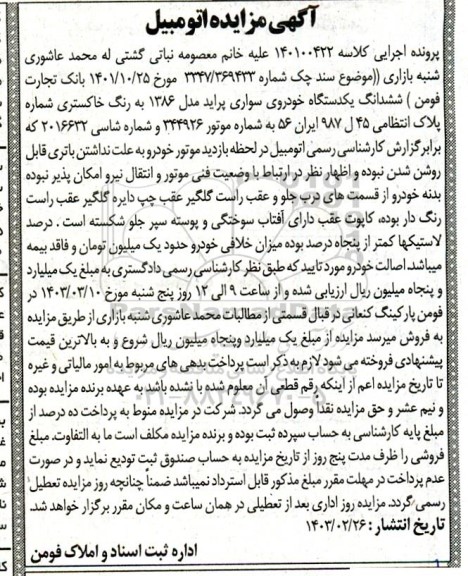 آگهی مزایده اتومبیل
پرونده اجرایی کلاسه ۱۴۰۱۰۰۴۲۲ علیه خانم معصومه نباتی گشتی له محمد عاشوری
شنبه بازاری ((موضوع سند چک شماره ۳۳۴۷/۳۶۹۴۳۳ مورخ ۱۴۰۱/۱۰/۲۵ بانک تجارت
فومن ) ششدانگ یکدستگاه خودروی سواری پراید مدل ۱۳۸۶ به رنگ خاکستری شماره
پلاک انتظامی ۴۵ ل ۹۸۷ ایران ۵۶ به شماره موتور ۳۴۴۹۲۶ و شماره شاسی ۲۰۱۶۶۳۲ که
برابر گزارش کارشناسی رسمی اتومبیل در لحظه بازدید موتور خودرو به علت نداشتن باتری قابل
روشن شدن نبوده و اظهار نظر در ارتباط با وضعیت فنی موتور و انتقال نیرو امکان پذیر نبوده
بدنه خودرو از قسمت های درب جلو و عقب راست گلگیر عقب چپ دایره گلگیر عقب راست
رنگ دار بوده، کاپوت عقب دارای آفتاب سوختگی و پوسته سپر جلو شکسته است . درصد
لاستیکها کمتر از پنجاه درصد بوده میزان خلافی خودرو حدود یک میلیون تومان و فاقد بیمه
میباشد.اصالت خودرو مورد تایید که طبق نظر کارشناسی رسمی دادگستری به مبلغ یک میلیارد
و پنجاه میلیون ریال ارزیابی شده و از ساعت ۹ الی ۱۲ روز پنج شنبه مورخ ۱۴۰۳/۰۳/۱۰ در
فومن پارکینگ کنعانی در قبال قسمتی از مطالبات محمد عاشوری شنبه بازاری از طریق مزایده
به فروش میرسد مزایده از مبلغ یک میلیارد وپنجاه میلیون ریال شروع و به بالاترین قیمت
پیشنهادی فروخته می شود لازم به ذکر است پرداخت بدهی های مربوط به امور مالیاتی و غیره
تا تاریخ مزایده اعم از اینکه رقم قطعی آن معلوم شده یا نشده باشد به عهده برنده مزایده بوده
و نیم عشر و حق مزایده نقداً وصول می گردد. شرکت در مزایده منوط به پرداخت ده درصد از
مبلغ پایه کارشناسی به حساب سپرده ثبت بوده و برنده مزایده مکلف است ما به التفاوت. مبلغ
فروشی را ظرف مدت پنج روز از تاریخ مزایده به حساب صندوق ثبت تودیع نماید و در صورت
عدم پرداخت در مهلت مقرر مبلغ مذکور قابل استرداد نمیباشد ضمناً چنانچه روز مزایده تعطیل
رسمی گردد. مزایده روز اداری بعد از تعطیلی در همان ساعت و مکان مقرر برگزار خواهد شد.
تاریخ انتشار : ۱۴۰۳/۰۲/۲۶
اداره ثبت اسناد و املاک فومن